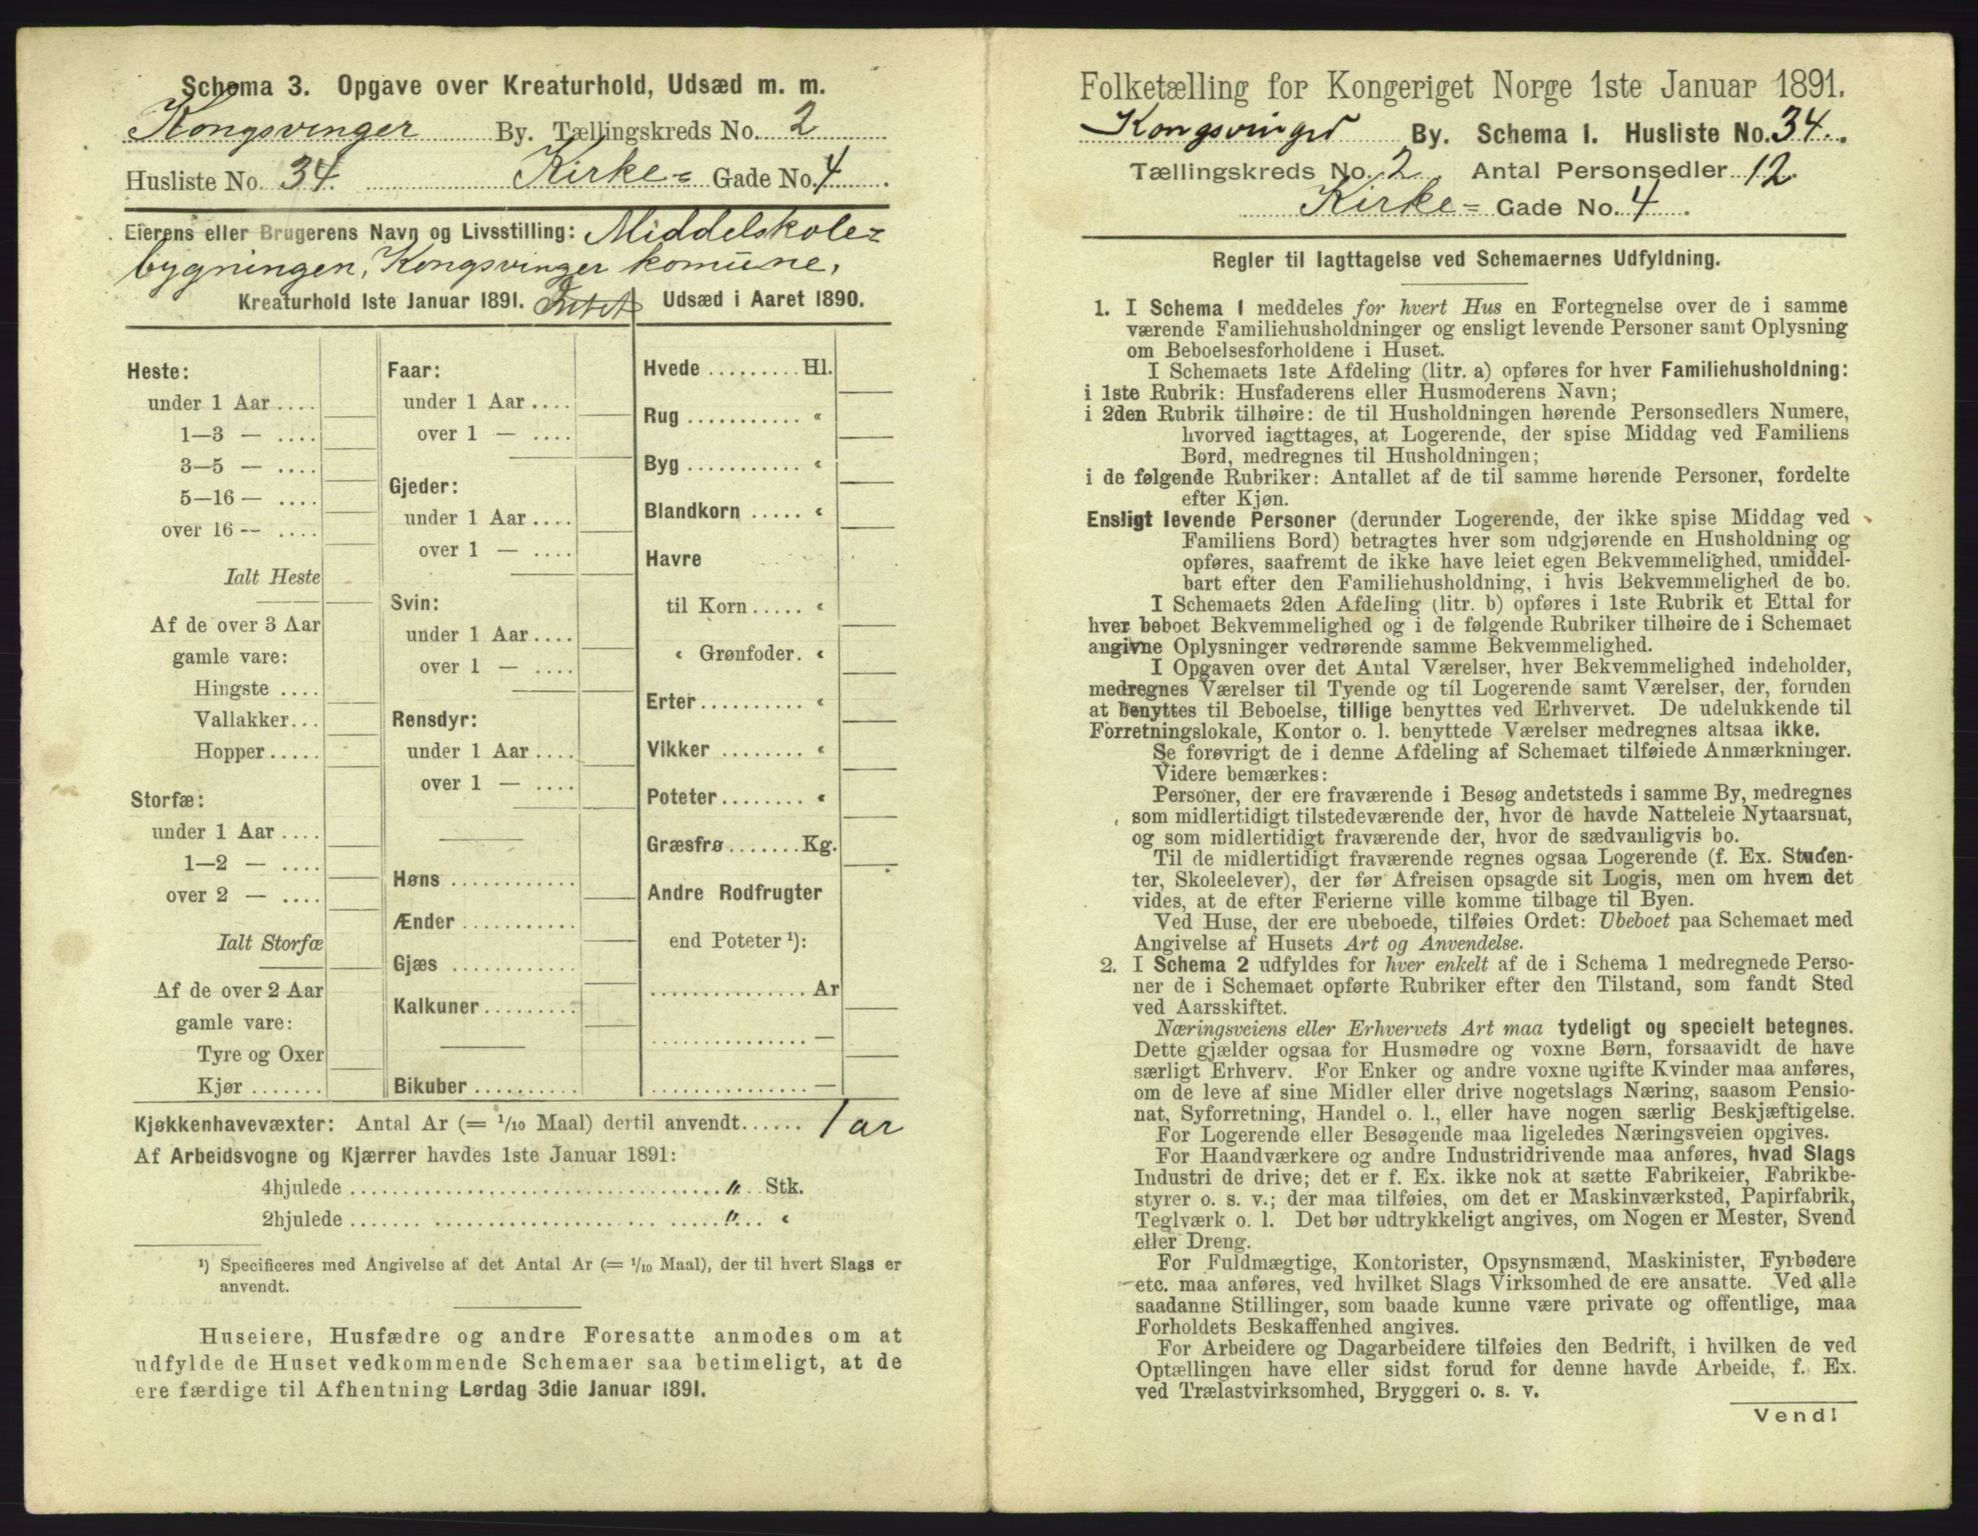 Schema 3. Opgave over Kreaturhold, Udsæd m. m.
Kongsvinger By. Tællingskreds No. 2
Husliste No. 34. Kirke= Gade No. 4.
Eierens eller Brugerens Navn og Livsstilling: Middelskole=
bygningen, Kongsvinger komune,
Kreaturhold 1ste Januar 1891. Intet Udsæd i Aaret 1890.
Heste:
under 1 Aar....
1—3 — ....
3—5 — ....
5—16 — ....
over 16 — ....
Ialt Heste
Af de over 3 Aar
gamle vare:
Hingste ....
Vallakker...
Hopper.....
Storfæ:
under 1 Aar....
1—2 — ....
over 2 — ....
Ialt Storfæ
Af de over 2 Aar
gamle vare:
Tyre og Oxer
Kjør.......
Faar:
under 1 Aar....
over 1 — ....
Gjeder:
under 1 Aar....
over 1 — ....
Svin:
under 1 Aar....
over 1 — ....
Rensdyr:
under 1 Aar....
over 1 — ....
Høns...........
Ænder..........
Gjæs...........
Kalkuner........
Bikuber.........
Hvede.........Hl.
Rug........... «
Byg........... «
Blandkorn..... «
Havre
til Korn..... «
« Grønfoder. «
Erter.......... «
Vikker........ «
Poteter........ «
Græsfrø.......Kg.
Andre Rodfrugter
end Poteter ¹):
...............Ar
............... —
............... —
Kjøkkenhavevæxter: Antal Ar (= 1/10 Maal) dertil anvendt...... 1 ar
Af Arbeidsvogne og Kjærrer havdes 1ste Januar 1891:
4hjulede .................... " Stk.
2hjulede .................... " «
¹) Specificeres med Angivelse af det Antal Ar (= 1/10 Maal), der til hvert Slags er
anvendt.
Huseiere, Husfædre og andre Foresatte anmodes om at
udfylde de Huset vedkommende Schemaer saa betimeligt, at de
ere færdige til Afhentning Lørdag 3die Januar 1891.
Folketælling for Kongeriget Norge 1ste Januar 1891.
Kongsvinger By. Schema 1. Husliste No. 34.
Tællingskreds No. 2. Antal Personsedler 12.
Kirke= Gade No. 4.
Regler til Iagttagelse ved Schemaernes Udfyldning.
1. I Schema 1 meddeles for hvert Hus en Fortegnelse over de i samme
værende Familiehusholdninger og ensligt levende Personer samt Oplysning
om Beboelsesforholdene i Huset.
I Schemaets 1ste Afdeling (litr. a) opføres for hver Familiehusholdning:
i 1ste Rubrik: Husfaderens eller Husmoderens Navn;
i 2den Rubrik tilhøire: de til Husholdningen hørende Personsedlers Numere,
hvorved iagttages, at Logerende, der spise Middag ved Familiens
Bord, medregnes til Husholdningen;
i de følgende Rubriker: Antallet af de til samme hørende Personer, fordelte
efter Kjøn.
Ensligt levende Personer (derunder Logerende, der ikke spise Middag ved
Familiens Bord) betragtes hver som udgjørende en Husholdning og
opføres, saafremt de ikke have leiet egen Bekvemmelighed, umiddel-
bart efter den Familiehusholdning, i hvis Bekvemmelighed de bo.
I Schemaets 2den Afdeling (litr. b) opføres i 1ste Rubrik et Ettal for
hver beboet Bekvemmelighed og i de følgende Rubriker tilhøire de i Schemaet
angivne Oplysninger vedrørende samme Bekvemmelighed.
I Opgaven over det Antal Værelser, hver Bekvemmelighed indeholder,
medregnes Værelser til Tyende og til Logerende samt Værelser, der, foruden
at benyttes til Beboelse, tillige benyttes ved Erhvervet. De udelukkende til
Forretningslokale, Kontor o. l. benyttede Værelser medregnes altsaa ikke.
Se forøvrigt de i denne Afdeling af Schemaet tilføiede Anmærkninger.
Videre bemærkes:
Personer, der ere fraværende i Besøg andetsteds i samme By, medregnes
som midlertidigt tilstedeværende der, hvor de havde Natteleie Nytaarsnat,
og som midlertidigt fraværende der, hvor de sædvanligvis bo.
Til de midlertidigt fraværende regnes ogsaa Logerende (f. Ex. Studen-
ter, Skoleelever), der før Afreisen opsagde sit Logis, men om hvem det
vides, at de efter Ferierne ville komme tilbage til Byen.
Ved Huse, der ere ubeboede, tilføies Ordet: Ubeboet paa Schemaet med
Angivelse af Husets Art og Anvendelse.
2. I Schema 2 udfyldes for hver enkelt af de i Schema 1 medregnede Perso-
ner de i Schemaet opførte Rubriker efter den Tilstand, som fandt Sted
ved Aarsskiftet.
Næringsveiens eller Erhvervets Art maa tydeligt og specielt betegnes.
Dette gjælder ogsaa for Husmødre og voxne Børn, forsaavidt de have
særligt Erhverv. For Enker og andre voxne ugifte Kvinder maa anføres,
om de leve af sine Midler eller drive nogetslags Næring, saasom Pensio-
nat, Syforretning, Handel o. l., eller have nogen særlig Beskjæftigelse.
For Logerende eller Besøgende maa ligeledes Næringsveien opgives.
For Haandværkere og andre Industridrivende maa anføres, hvad Slags
Industri de drive; det er f. Ex. ikke nok at sætte Fabrikeier, Fabrikbe-
styrer o. s. v.; der maa tilføies, om det er Maskinværksted, Papirfabrik,
Teglværk o. l. Det bør udtrykkeligt angives, om Nogen er Mester, Svend
eller Dreng.
For Fuldmægtige, Kontorister, Opsynsmænd, Maskinister, Fyrbødere
etc. maa anføres, ved hvilket Slags Virksomhed de ere ansatte. Ved alle
saadanne Stillinger, som baade kunne være private og offentlige, maa
Forholdets Beskaffenhed angives.
For Arbeidere og Dagarbeidere tilføies den Bedrift, i hvilken de ved
Optællingen have eller sidst forud for denne havde Arbeide, f. Ex.
ved Trælastvirksomhed, Bryggeri o. s. v.
Vend!